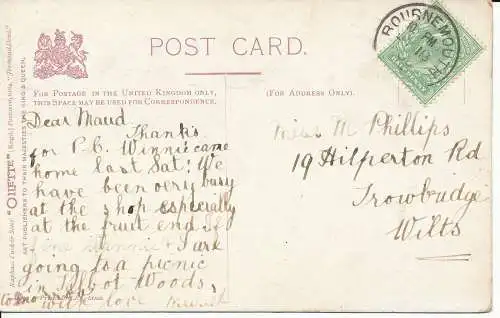 POST CARD.
FOR POSTAGE IN THE UNITED KINGDOM ONLY,
THIS SPACE MAY BE USED FOR CORRESPONDENCE.
(FOR ADDRESS ONLY).
BOURNEMOUTH
PM
Dear Maud
Thanks
for P.C. Winnie came
home last Sat: We
have been very busy
at the shop especially
at the fruit end if
fine Winnie & I are
going to a picnic
in Talbot Woods,
with love
Miss M Phillips
19 Hilperton Rd
Trowbridge
Wilts
"OILETTE"
ART PUBLISHERS TO THEIR MAJESTIES THE KING & QUEEN.